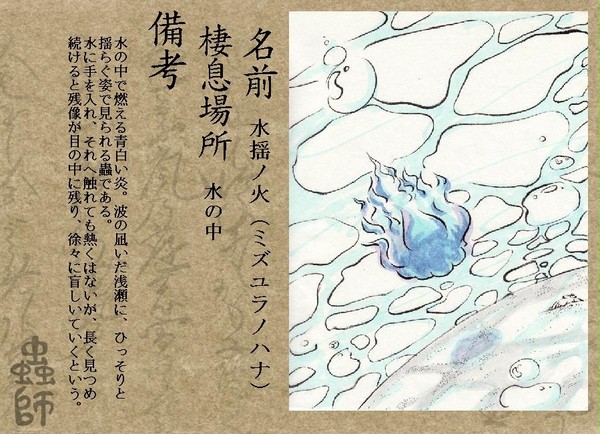 名前 水揺ノ火(ミズユラノハナ)
棲息場所 水の中
備考
水の中で燃える青白い炎。波の凪いだ浅瀬に、ひっそりと
揺らぐ姿で見られる蟲である。
水に手を入れ、それへ触れても熱くはないが、長く見つめ
続けると残像が目の中に残り、徐々に盲しいていくという。
蟲師